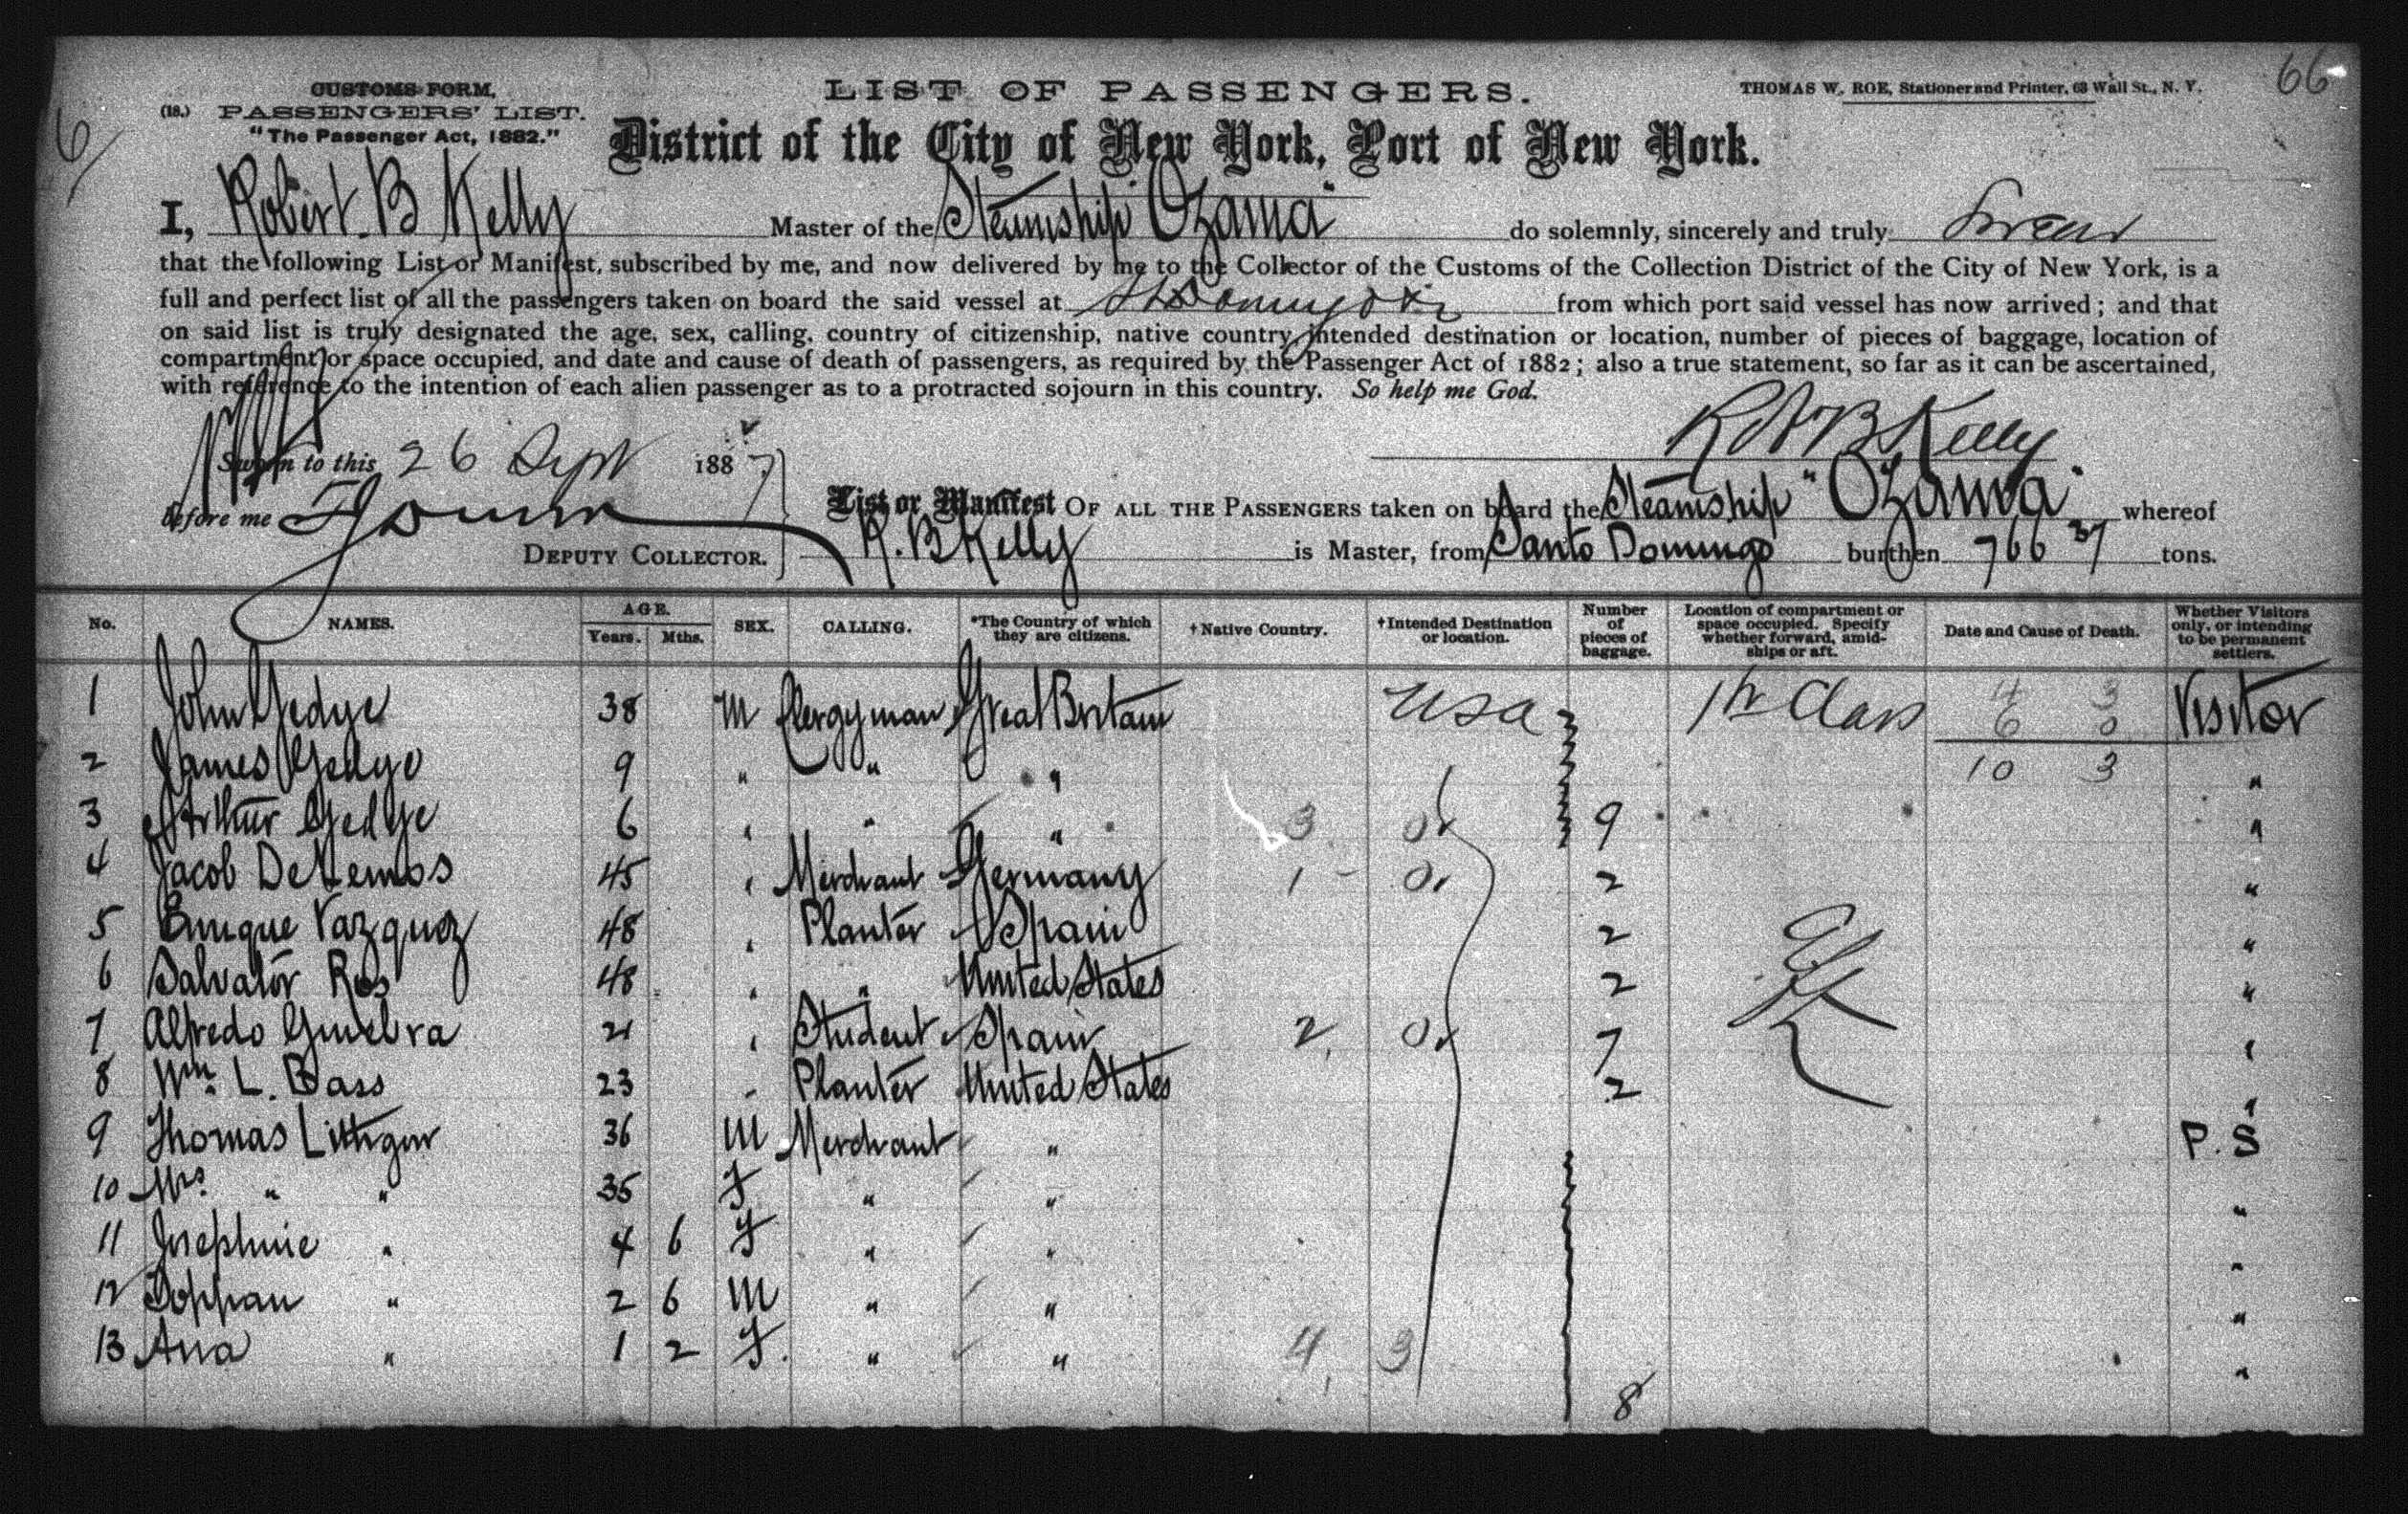 66
6
CUSTOMS FORM.
(18.) PASSENGERS' LIST.
"The Passenger Act, 1882."
LIST OF PASSENGERS.
THOMAS W. ROE, Stationer and Printer, 63 Wall St., N. Y.
District of the City of New York, Port of New York.
I, Robert B Kelly Master of the Steamship "Ozama" do solemnly, sincerely and truly Swear
that the following List or Manifest, subscribed by me, and now delivered by me to the Collector of the Customs of the Collection District of the City of New York, is a
full and perfect list of all the passengers taken on board the said vessel at from which port said vessel has now arrived; and that
on said list is truly designated the age, sex, calling, country of citizenship, native country, intended destination or location, number of pieces of baggage, location of
compartment or space occupied, and date and cause of death of passengers, as required by the Passenger Act of 1882; also a true statement, so far as it can be ascertained,
with reference to the intention of each alien passenger as to a protracted sojourn in this country. So help me God.
Sworn to this 26 Sept 1887.
RobB Kelly
before me
DEPUTY COLLECTOR.
List or Manifest OF ALL THE PASSENGERS taken on board the Steamship "Ozama" whereof
R. B Kelly is Master, from Santo Domingo burthen 766 37 tons.
No. NAMES. AGE. Years. Mths. SEX. CALLING. *The Country of which they are citizens. †Native Country. †Intended Destination or location. Number of pieces of baggage. Location of compartment or space occupied. Specify whether forward, amidships or aft. Date and Cause of Death. Whether Visitors only, or intending to be permanent settlers.
1 John Gedye 38 M Clergyman Great Britain USA 1st Class 4 3 6 0 Visitor
2 James Gedye 9 " " " 10 3 "
3 Arthur Gedye 6 " " " 3 0 9 "
4 Jacob DeLemos 45 " Merchant Germany 1 - 0 2 "
5 Enrique Vazquez 48 " Planter Spain 2 "
6 Salvator Ros 48 " " United States 2 "
7 Alfredo Ginebra 21 " Student Spain 2 0 7 "
8 Wm. L. Bass 23 " Planter United States 2 "
9 Thomas Lithgow 36 M Merchant " P. S
10 Mrs. " " 35 F " " "
11 Josephine " 4 6 F " " "
12 Toppan " 2 6 M " " "
13 Ana " 1 2 F. " " 4 3 "
8